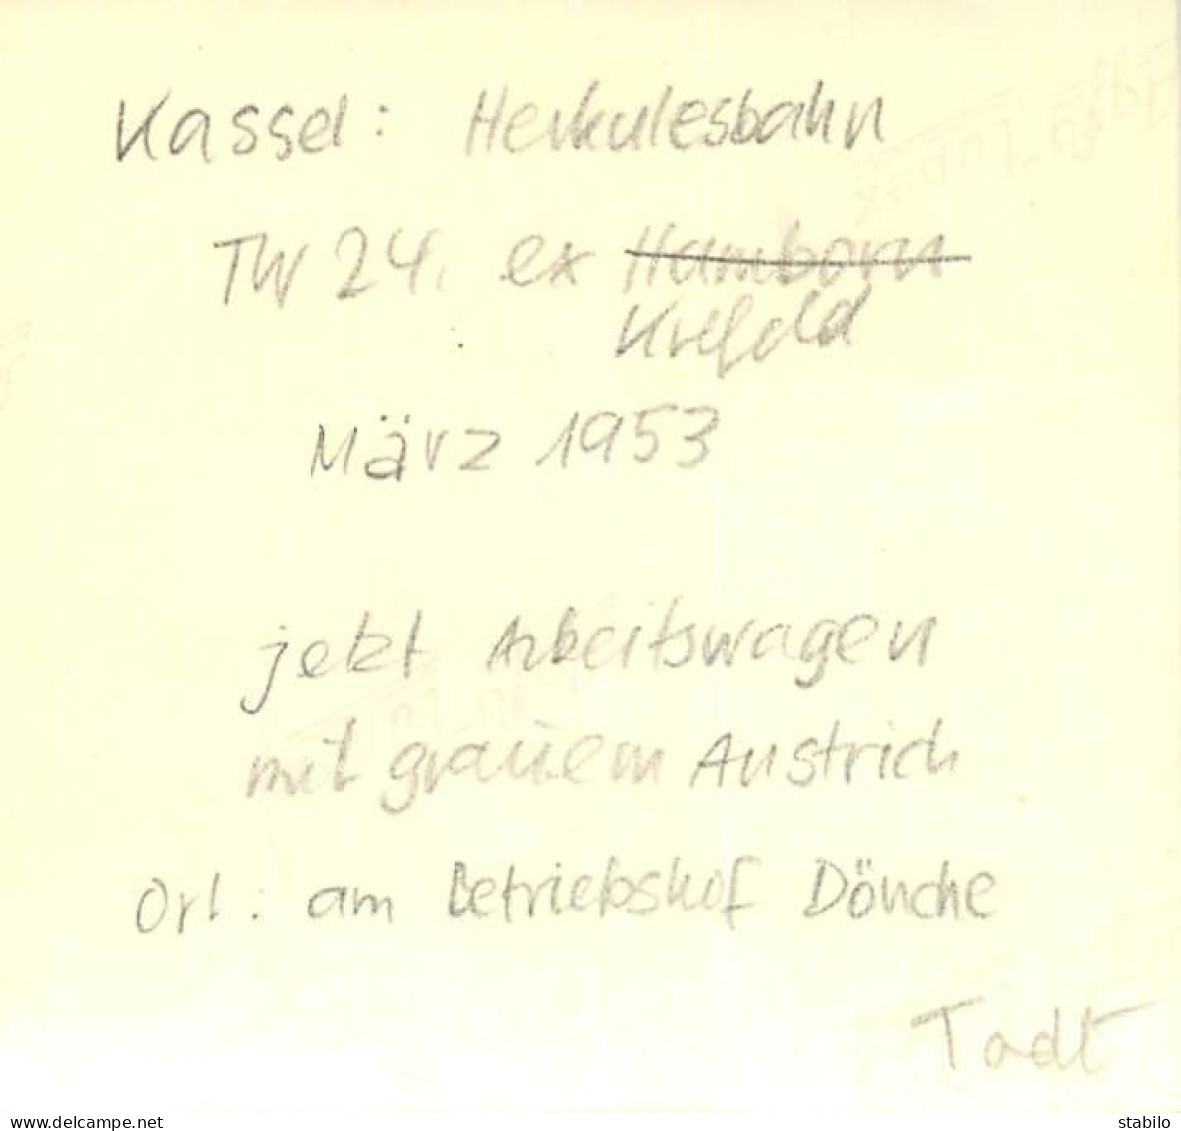 Kassel: Herkulesbahn
TW 24, ex Hamborn
Krefeld
März 1953
jetzt Arbeitswagen
mit grauem Anstrich
Ort: am Betriebshof Dönche
Tadt
delcampe.net
stabilo